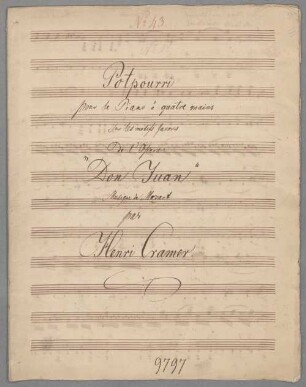 No 43
Potpourri
pour le Piano à quatre mains
sur les motifs favoris
De l'Opéra
"Don Juan"
Musique de Mozart
par
Henri Cramer
9797